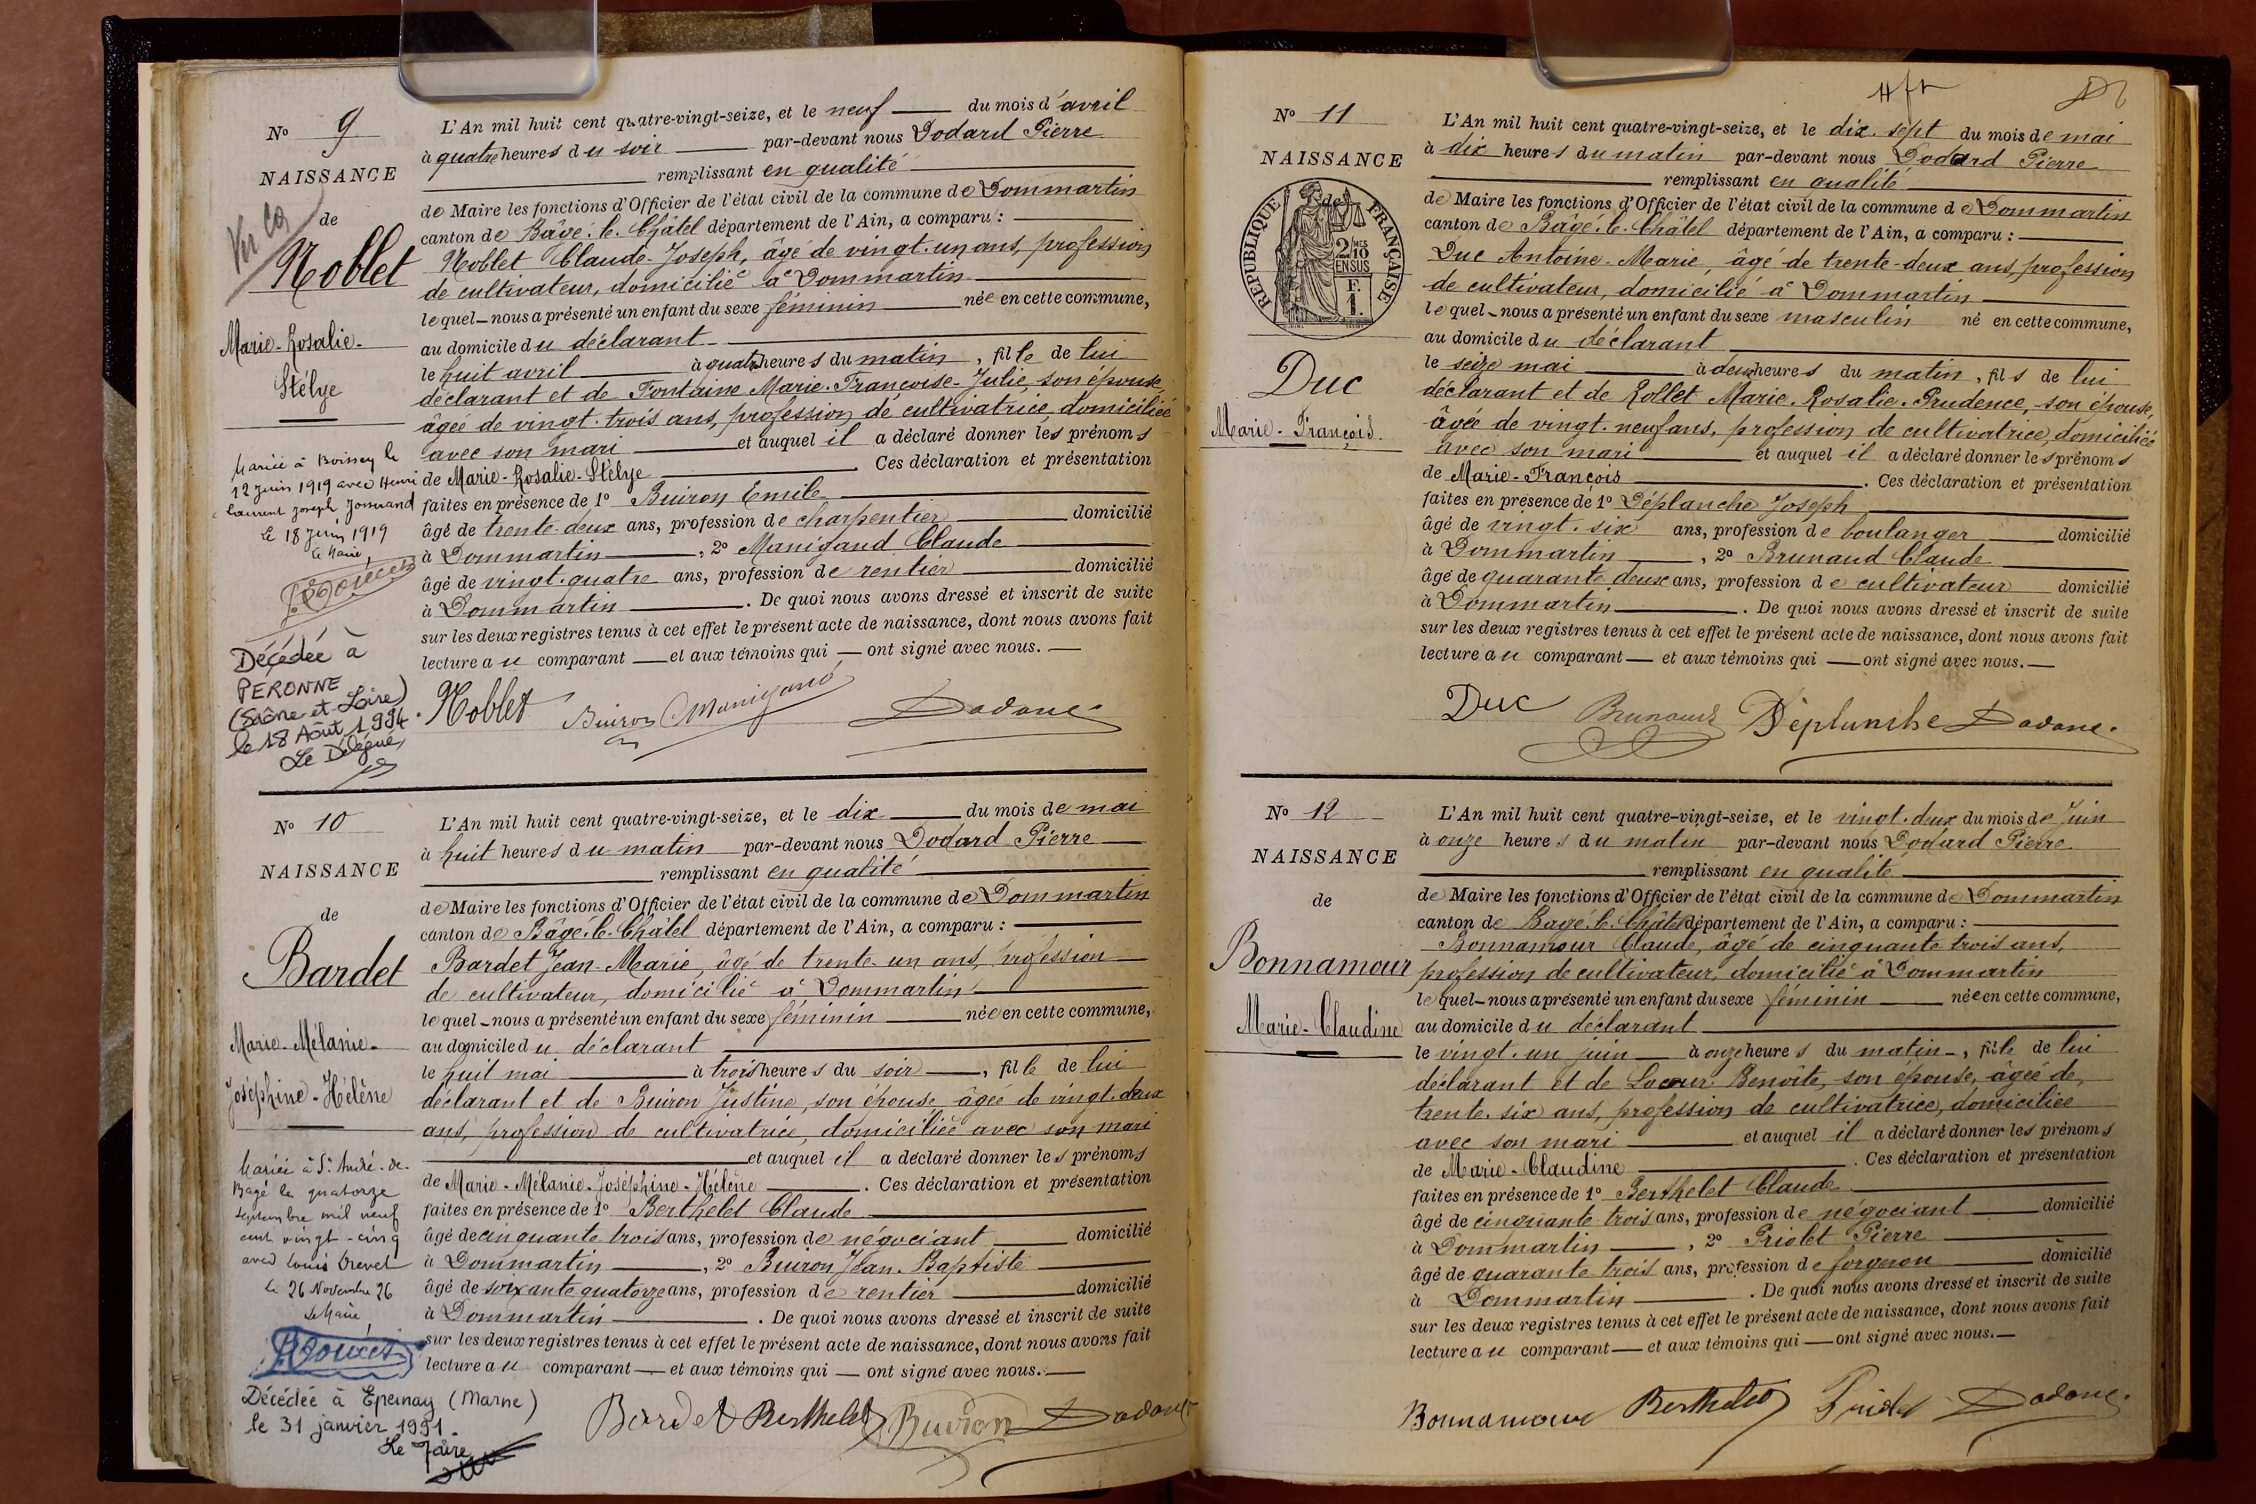 N° 9
NAISSANCE
de
Noblet
Marie-Rosalie-
Stélye
Mariée à Boissey le
12 Juin 1919 avec Henri
Laurent Joseph
le 18 Juin 1919
Le Maire,
Décédée à
PERONNE
(Saône et Loire)
le 18 Août 1994.
Le Délégué,
L'An mil huit cent quatre-vingt-seize, et le neuf du mois d'avril
à quatre heures du soir par-devant nous Dodard Pierre
remplissant en qualité
de Maire les fonctions d'Officier de l'état civil de la commune de Dommartin
canton de Bâgé-le-Châtel département de l'Ain, a comparu :
Noblet Claude-Joseph, âgé de vingt-un ans, profession
de cultivateur, domicilié à Dommartin
lequel nous a présenté un enfant du sexe féminin née en cette commune,
au domicile du déclarant
le huit avril à quatre heures du matin, fille de lui
déclarant et de Fontaine Marie-Françoise-Julie, son épouse
âgée de vingt-trois ans, profession de cultivatrice domiciliée
avec son mari et auquel il a déclaré donner les prénoms
de Marie-Rosalie-Stélye. Ces déclaration et présentation
faites en présence de 1° Buiron Emile
âgé de trente-deux ans, profession de charpentier domicilié
à Dommartin, 2° Manigand Claude
âgé de vingt-quatre ans, profession de rentier domicilié
à Dommartin. De quoi nous avons dressé et inscrit de suite
sur les deux registres tenus à cet effet le présent acte de naissance, dont nous avons fait
lecture au comparant et aux témoins qui ont signé avec nous.
Noblet Buiron Manigand Dodard
N° 10
NAISSANCE
de
Bardet
Marie-Mélanie-
Joséphine-Hélène
Mariée à St André-de-
Bagé le quatorze
septembre mil neuf
cent vingt-cinq
avec Louis Crevel
le 26 Novembre 26
Le Maire,
Décédée à Epernay (Marne)
le 31 janvier 1991.
Le Maire
L'An mil huit cent quatre-vingt-seize, et le dix du mois de mai
à huit heures du matin par-devant nous Dodard Pierre
remplissant en qualité
de Maire les fonctions d'Officier de l'état civil de la commune de Dommartin
canton de Bâgé-le-Châtel département de l'Ain, a comparu :
Bardet Jean-Marie, âgé de trente-un ans, profession
de cultivateur, domicilié à Dommartin
lequel nous a présenté un enfant du sexe féminin née en cette commune,
au domicile du déclarant
le huit mai à trois heures du soir, fille de lui
déclarant et de Buiron Justine, son épouse âgée de vingt-deux
ans, profession de cultivatrice, domiciliée avec son mari
et auquel il a déclaré donner les prénoms
de Marie-Mélanie-Joséphine-Hélène. Ces déclaration et présentation
faites en présence de 1° Berthelet Claude
âgé de cinquante trois ans, profession de négociant domicilié
à Dommartin, 2° Buiron Jean-Baptiste
âgé de soixante quatorze ans, profession de rentier domicilié
à Dommartin. De quoi nous avons dressé et inscrit de suite
sur les deux registres tenus à cet effet le présent acte de naissance, dont nous avons fait
lecture au comparant et aux témoins qui ont signé avec nous.
Bardet Berthelet Buiron Dodard
N° 11
NAISSANCE
de
REPUBLIQUE FRANÇAISE
2/10 EN SUS
F. 1.
Duc
Marie-François
L'An mil huit cent quatre-vingt-seize, et le dix-sept du mois de mai
à dix heures du matin par-devant nous Dodard Pierre
remplissant en qualité
de Maire les fonctions d'Officier de l'état civil de la commune de Dommartin
canton de Bâgé-le-Châtel département de l'Ain, a comparu :
Duc Antoine-Marie, âgé de trente-deux ans, profession
de cultivateur, domicilié à Dommartin
lequel nous a présenté un enfant du sexe masculin né en cette commune,
au domicile du déclarant
le seize mai à deux heures du matin, fils de lui
déclarant et de Rollet Marie-Rosalie-Prudence, son épouse,
âgée de vingt-neuf ans, profession de cultivatrice, domiciliée
avec son mari et auquel il a déclaré donner les prénoms
de Marie-François. Ces déclaration et présentation
faites en présence de 1° Déplanche Joseph
âgé de vingt-six ans, profession de boulanger domicilié
à Dommartin, 2° Brunaud Claude
âgé de quarante deux ans, profession de cultivateur domicilié
à Dommartin. De quoi nous avons dressé et inscrit de suite
sur les deux registres tenus à cet effet le présent acte de naissance, dont nous avons fait
lecture au comparant et aux témoins qui ont signé avec nous.
Duc Brunaud Déplanche Dodard
N° 12
NAISSANCE
de
Bonnamour
Marie-Claudine
L'An mil huit cent quatre-vingt-seize, et le vingt-deux du mois de Juin
à onze heures du matin par-devant nous Dodard Pierre
remplissant en qualité
de Maire les fonctions d'Officier de l'état civil de la commune de Dommartin
canton de Bagé-le-Châtel département de l'Ain, a comparu :
Bonnamour Claude, âgé de cinquante trois ans,
profession de cultivateur, domicilié à Dommartin
lequel nous a présenté un enfant du sexe féminin née en cette commune,
au domicile du déclarant
le vingt-un juin à onze heures du matin, fille de lui
déclarant et de Lacour Benoîte, son épouse, âgée de
trente-six ans, profession de cultivatrice, domiciliée
avec son mari et auquel il a déclaré donner les prénoms
de Marie-Claudine. Ces déclaration et présentation
faites en présence de 1° Berthelet Claude
âgé de cinquante trois ans, profession de négociant domicilié
à Dommartin, 2° Priolet Pierre
âgé de quarante trois ans, profession de forgeron domicilié
à Dommartin. De quoi nous avons dressé et inscrit de suite
sur les deux registres tenus à cet effet le présent acte de naissance, dont nous avons fait
lecture au comparant et aux témoins qui ont signé avec nous.
Bonnamour Berthelet Dodard